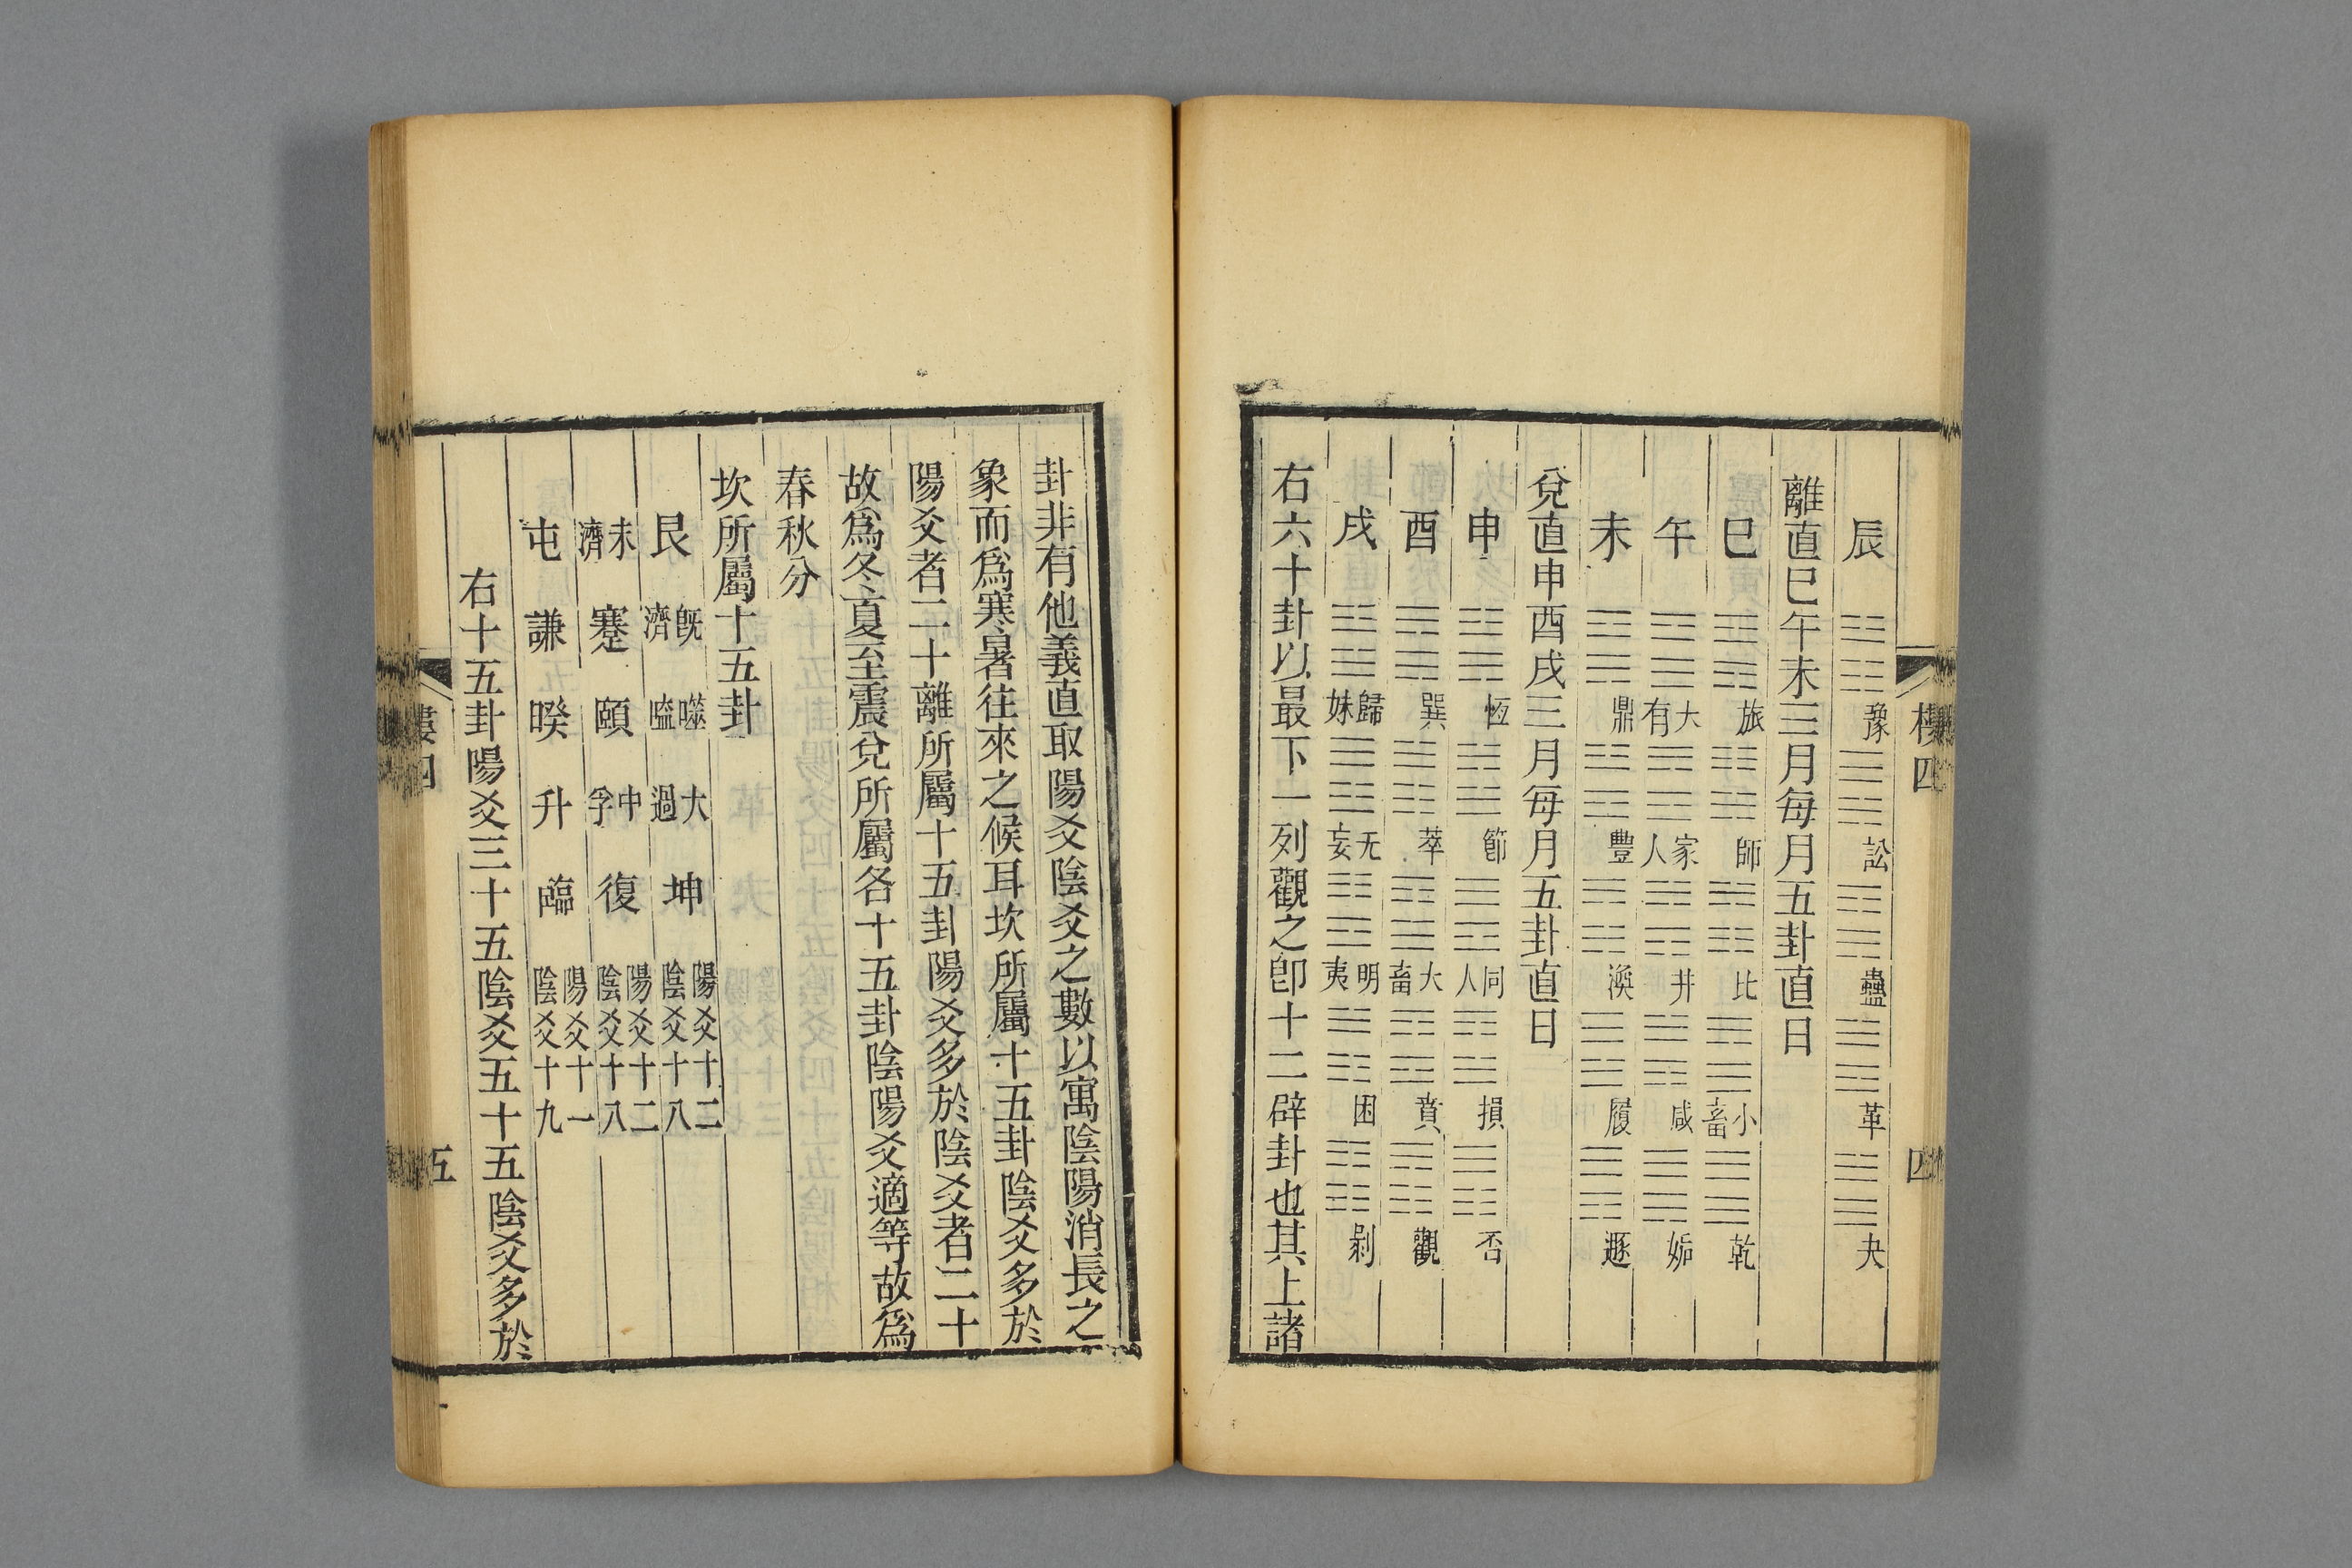 辰 豫 訟 蠱 革 夬
離直巳午未三月每月五卦直日
巳 旅 師 比 小畜 乾
午 大有 家人 井 咸 姤
未 鼎 豐 渙 履 遯
兌直申酉戌三月每月五卦直日
申 恆 節 同人 損 否
酉 巽 萃 大畜 賁 觀
戌 歸妹 无妄 明夷 困 剝
右六十卦以最下一列觀之卽十二辟卦也其上諸
卦非有他義直取陽爻陰爻之數以寓陰陽消長之
象而爲寒暑往來之候耳坎所屬十五卦陰爻多於
陽爻者二十離所屬十五卦陽爻多於陰爻者二十
故爲冬夏至震兌所屬各十五卦陰陽爻適等故爲
春秋分
坎所屬十五卦
艮 旣濟 噬嗑 大過 坤 陽爻十二 陰爻十八
未濟 蹇 頤 中孚 復 陽爻十二 陰爻十八
屯 謙 睽 升 臨 陽爻十一 陰爻十九
右十五卦陽爻三十五陰爻五十五陰爻多於
樓四
四
五